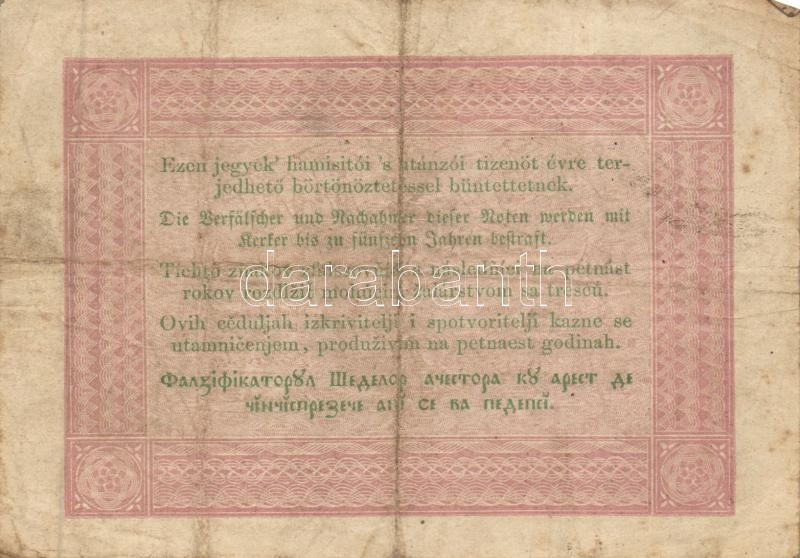 Ezen jegyek' hamisitói 's utánzói tizenöt évre ter-
jedhető börtönöztetéssel büntettetnek.
Die Verfälscher und Nachahmer dieser Noten werden mit
Kerker bis zu fünfzehn Jahren bestraft.
Tichto na petnást
rokov žalárstvom sa trescú.
Ovih cĕduljah izkrivitelji i spotvoritelji kazne se
utamničenjem, produživim na petnaest godinah.
Фалзіфікаторꙋл Шеделор ачестора кꙋ арест де
чінчіспрезече ані се ва педепсі.
darabanth